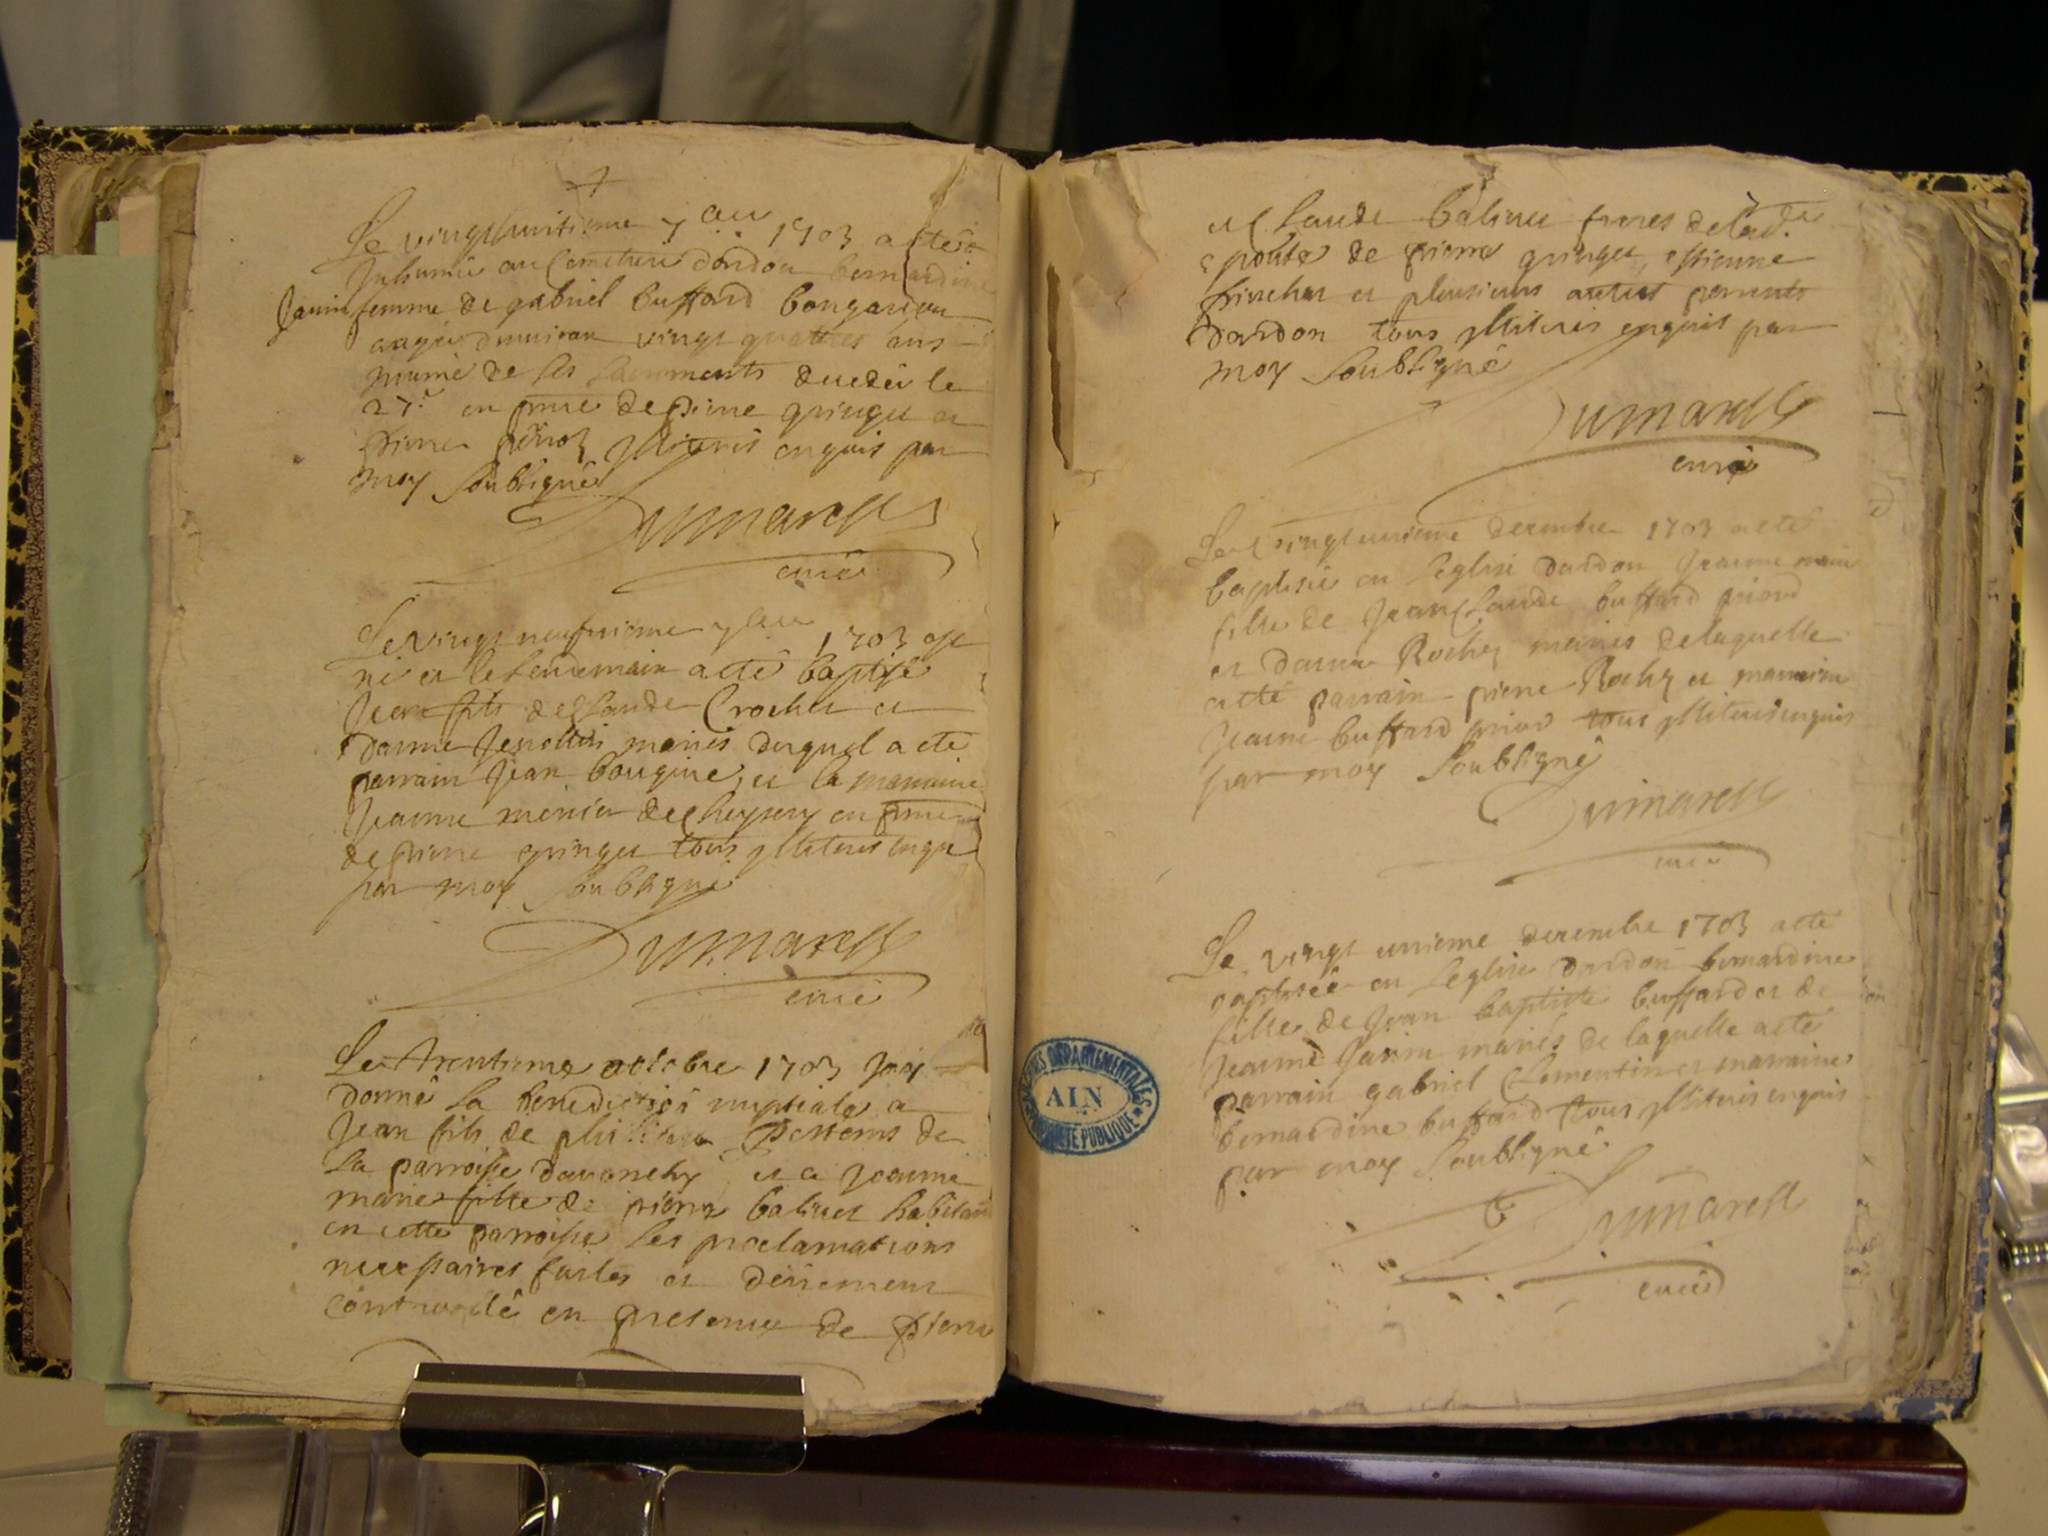 Le vingthuitieme 7 1703 a esté
Inhumée au Cemetiere dardon bernardine
Janin femme de gabriel buffard bongardon
aagée denviron vingt quattres ans
munie de ses sacrements decedée le
27e en pnce de pierre gringet et
pierre illiterés enquis par
moy soubsigné
Dumarest
curé
Le vingt neufvieme 1703 est
né et le lendemain a esté baptisé
Jean fils de Claude Crochet et
maries duquel a esté
parrain Jean bougine et la marraine
Jeanne de en pnce
de pierre gringet tous illiterés enquis
par moy soubsigné
Dumarest
curé
Le trentieme octobre 1703 Jay
donné la benediction nuptiale a
Jean fils de de
la parroisse et a Jeanne
marie fille de pierre balivet habitant
en cette parroisse les proclamations
necessaires faites et
en presence de pierre
et Claude balivet freres de lad.
epouse de pierre gringet, estienne
et plusieurs autres parents
dardon tous illiterés enquis par
moy soubsigné
Dumarest
curé
Le vingt unieme decembre 1703 a esté
baptisée en Leglise dardon Jeanne marie
fille de Jean Claude buffard
et Rochez mariés de laquelle
a esté parrain pierre Rochez et marraine
Jeanne buffard tous illiterés enquis
par moy soubsigné
Dumarest
curé
Le vingt unieme decembre 1703 a esté
baptisée en Leglise dardon bernardine
fille de Jean baptiste buffard et de
Jeanne Janin mariés de laquelle a esté
parrain gabriel Clementin et marraine
bernardine buffard tous illiterés enquis
par moy soubsigné
Dumarest
curé
ARCHIVES DÉPARTEMENTALES
AIN
PROPRIÉTÉ PUBLIQUE